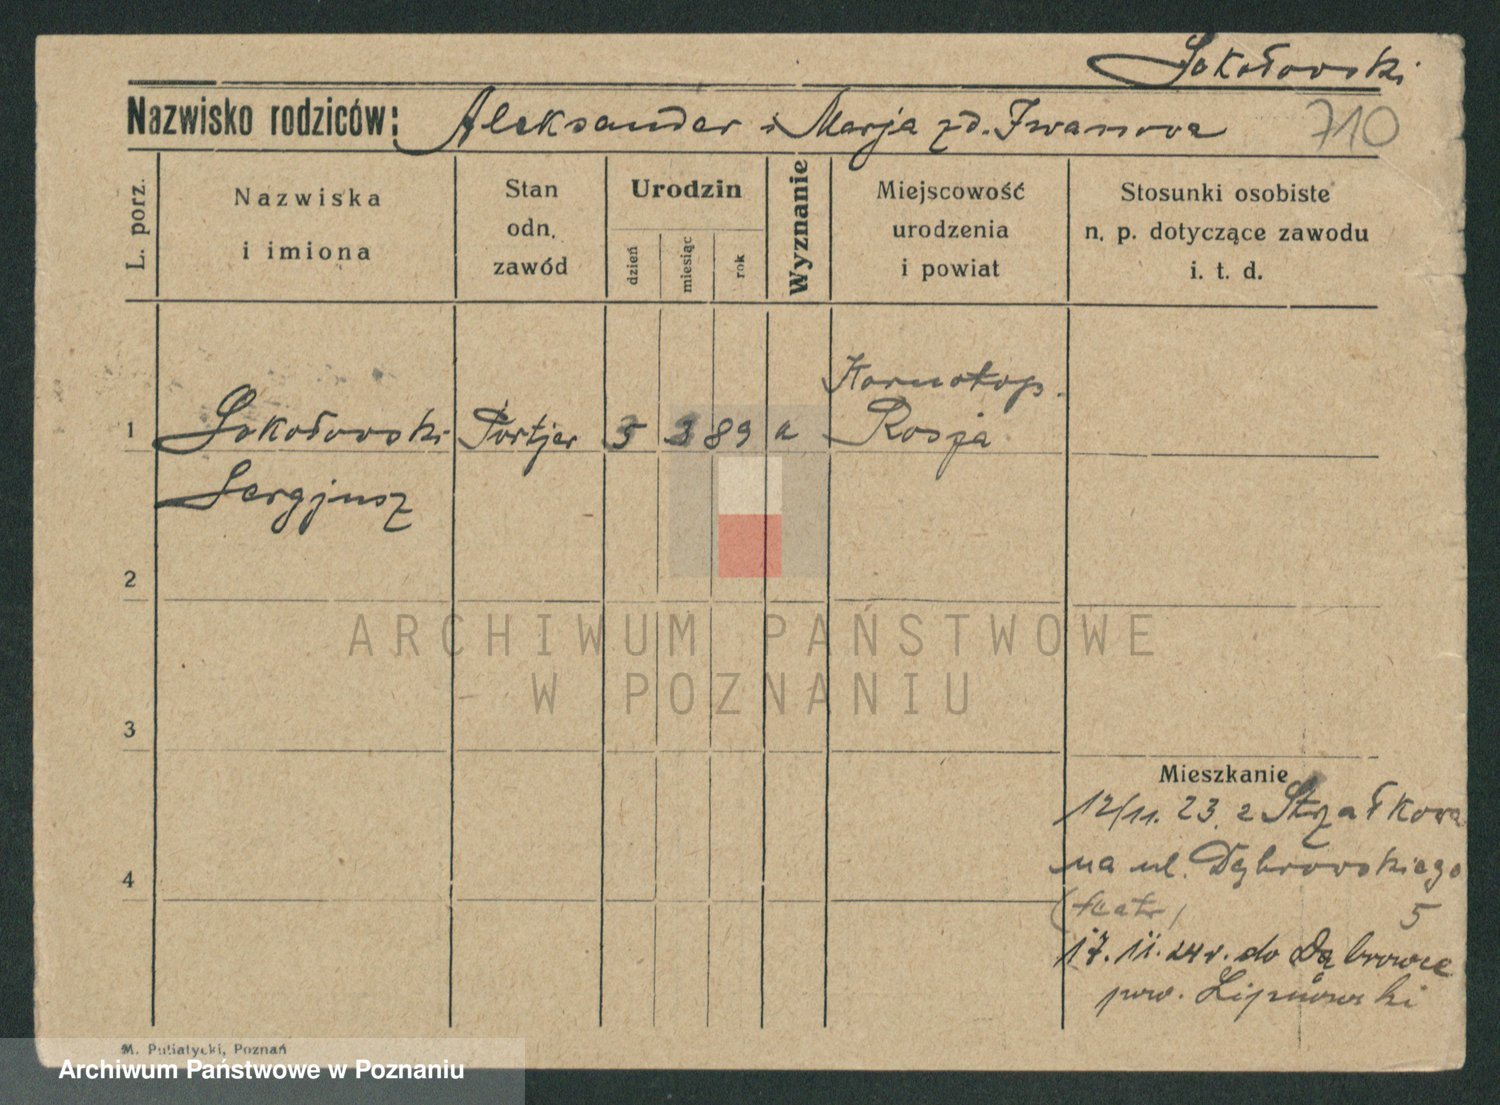 Sokołowski
Nazwisko rodziców: Aleksander i Marja zd. Iwanowa 710
L. porz.
Nazwiska
i imiona
Stan
odn.
zawód
Urodzin
dzień
miesiąc
rok
Wyznanie
Miejscowość
urodzenia
i powiat
Stosunki osobiste
n. p. dotyczące zawodu
i. t. d.
Kornotop.
1 Sokołowski Portjer 5 3 89 a Rosja
Sergjusz
2
3
4
Mieszkanie
12/11. 23. z Strzałkowa
na ul. Dąbrowskiego
(teatr) 5
17. II. 24 r. do Dąbrowce
pow. Lipnowski
M. Putiatycki, Poznań
ARCHIWUM PAŃSTWOWE
W POZNANIU
Archiwum Państwowe w Poznaniu